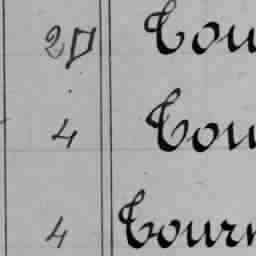 20 Cou
4 Cou
4 Courn